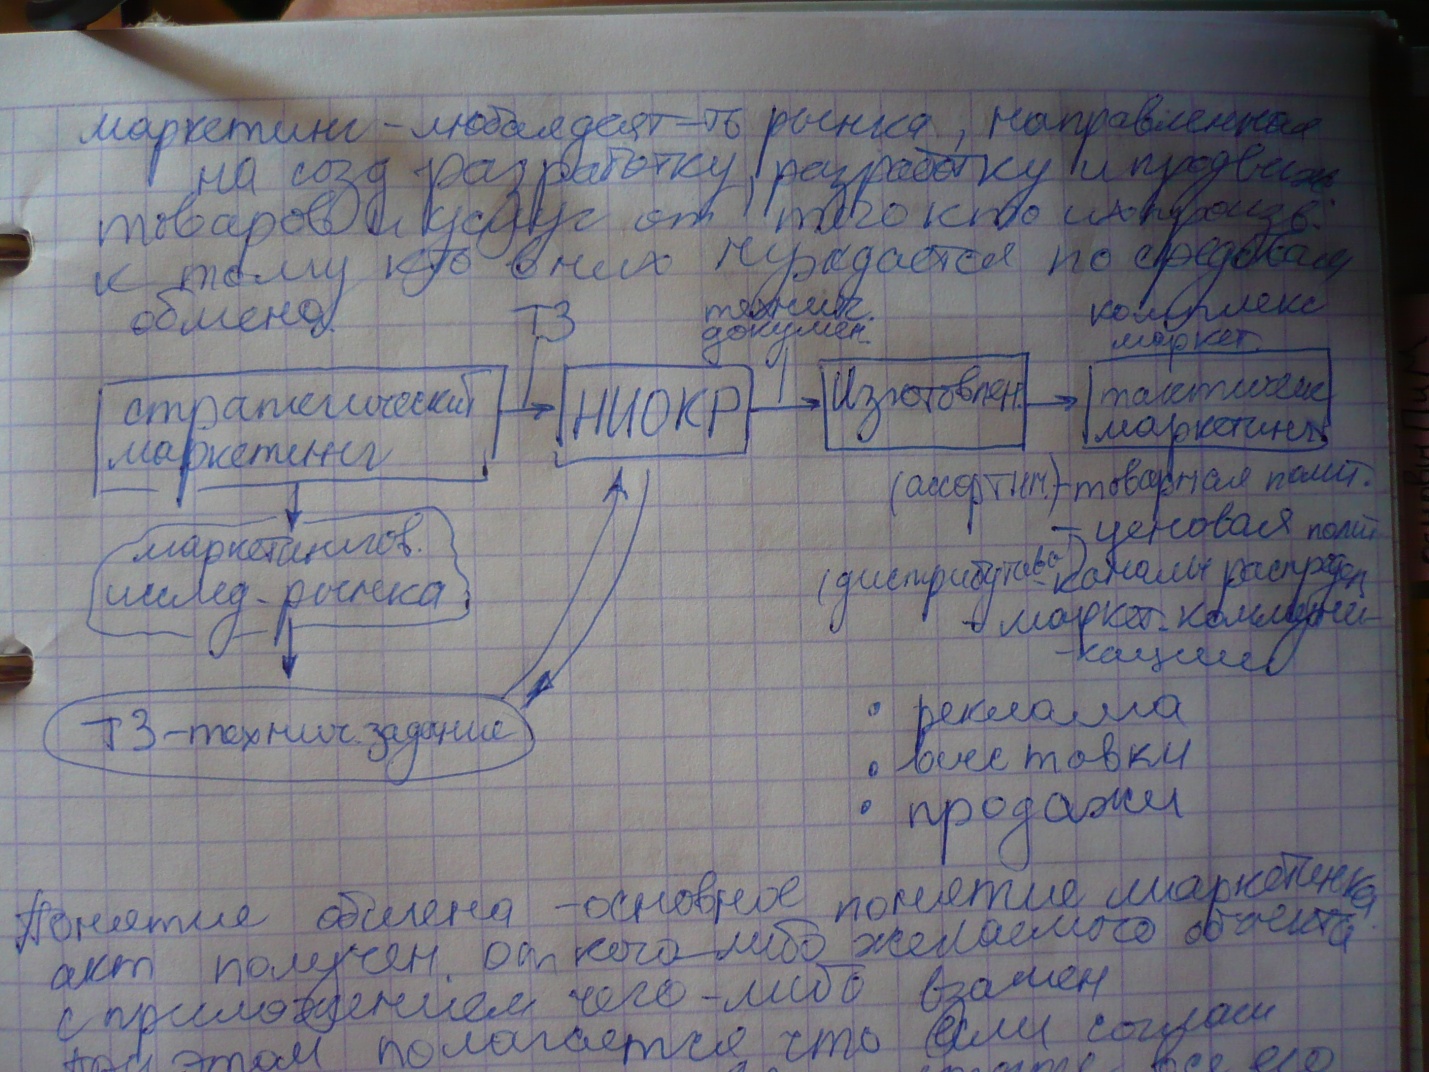 маркетинг – любая деят-ть рынка, направленная
на созд разработку, разработку и продвиж
товаров и услуг от того кто их произв.
к тому кто в них нуждается по средствам
обмена.
ТЗ
технич.
докумен.
комплекс
маркет.
стратегический
маркетинг
НИОКР
Изготовлен.
тактическ
маркетинг
(ассортим.) – товарная полит.
– ценовая полит
маркетингов.
исслед. рынка
(дистрибутиво) – каналы распредел
– маркет. коммуни-
-кации
ТЗ – технич. задание
• реклама
• выставки
• продажи
Понятие обмена – основное понятие маркетинка
акт получен. от кого-либо желаемого объекта
с приложением чего-либо взамен
при этом полагается что если соглаш
все его